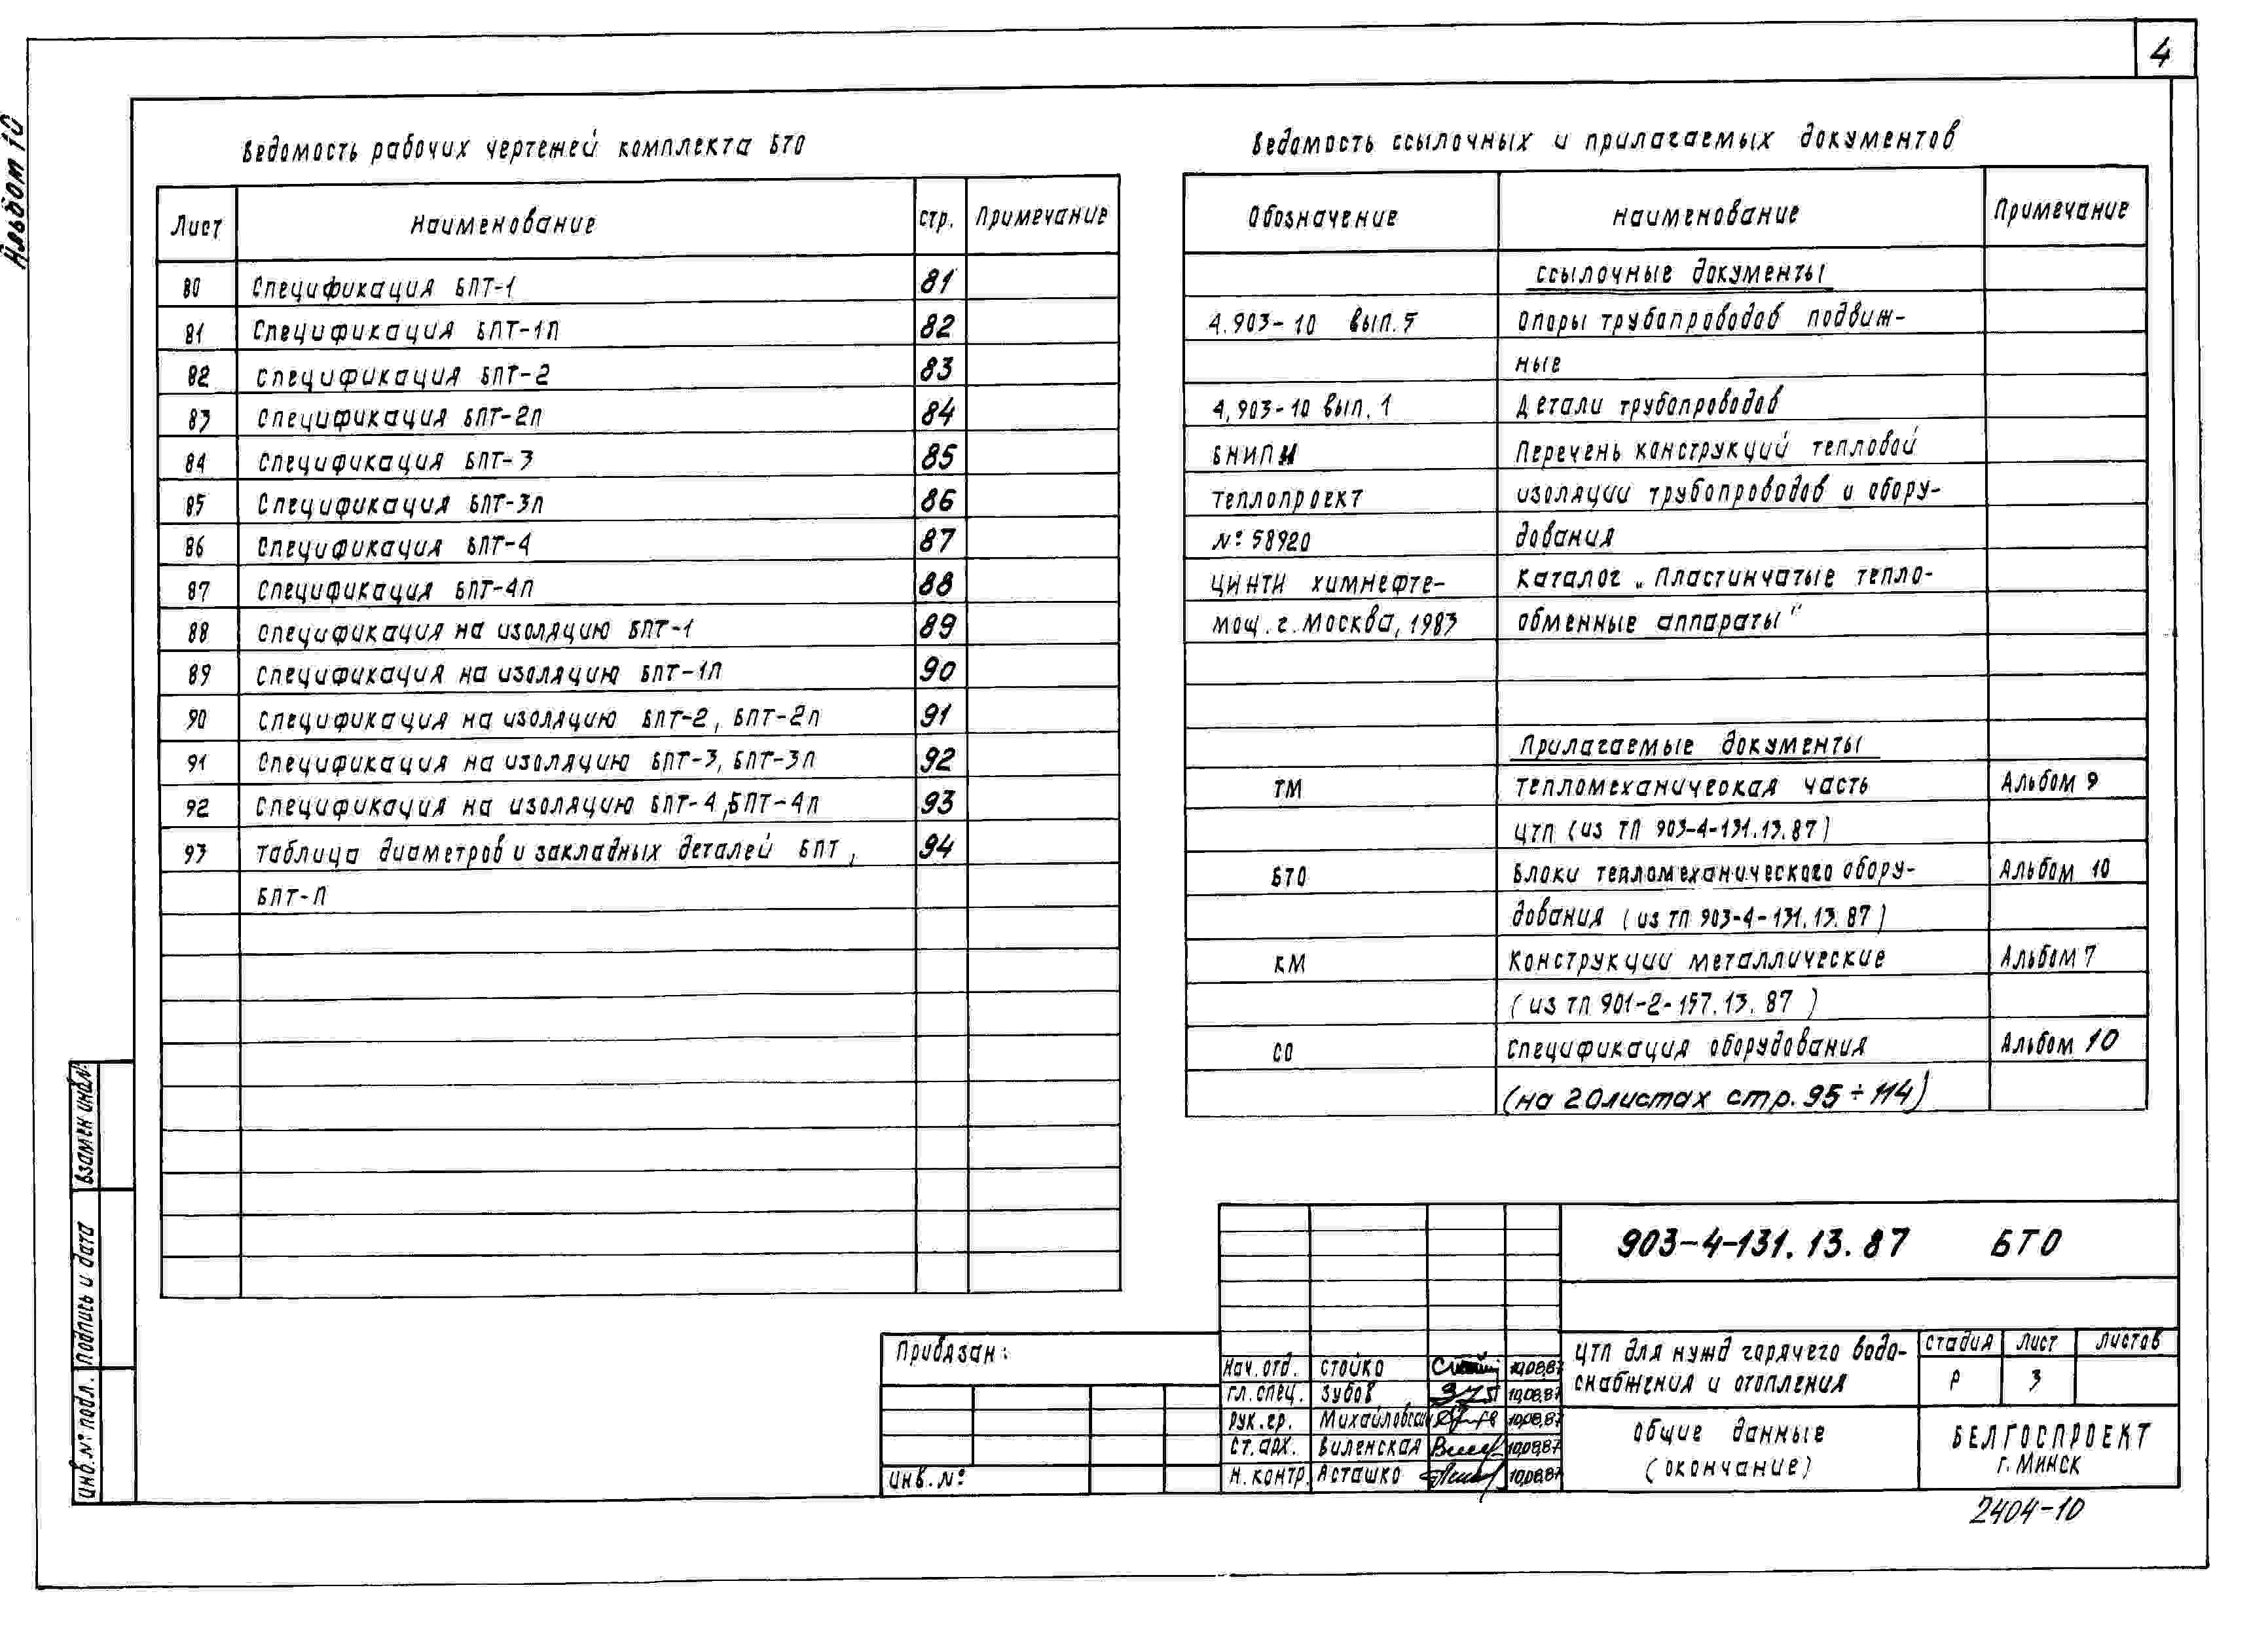 4
Альбом 10
Ведомость рабочих чертежей комплекта БТО
Лист Наименование стр. Примечание
80 Спецификация БПТ-1 81
81 Спецификация БПТ-1П 82
82 Спецификация БПТ-2 83
83 Спецификация БПТ-2П 84
84 Спецификация БПТ-3 85
85 Спецификация БПТ-3П 86
86 Спецификация БПТ-4 87
87 Спецификация БПТ-4П 88
88 Спецификация на изоляцию БПТ-1 89
89 Спецификация на изоляцию БПТ-1П 90
90 Спецификация на изоляцию БПТ-2, БПТ-2П 91
91 Спецификация на изоляцию БПТ-3, БПТ-3П 92
92 Спецификация на изоляцию БПТ-4, БПТ-4П 93
93 Таблица диаметров и закладных деталей БПТ, 94
БПТ-П
Ведомость ссылочных и прилагаемых документов
Обозначение Наименование Примечание
Ссылочные документы
4.903-10 вып.5 Опоры трубопроводов подвиж-
ные
4.903-10 вып.1 Детали трубопроводов
ВНИПИ Перечень конструкций тепловой
теплопроект изоляции трубопроводов и обору-
№ 58920 дования
ЦИНТИ химнефте- Каталог „Пластинчатые тепло-
маш. г. Москва, 1983 обменные аппараты"
Прилагаемые документы
ТМ Тепломеханическая часть Альбом 9
ЦТП (из ТП 903-4-131.13.87)
БТО Блоки тепломеханического обору- Альбом 10
дования (из ТП 903-4-131.13.87)
КМ Конструкции металлические Альбом 7
(из ТП 901-2-157.13.87)
СО Спецификация оборудования Альбом 10
(на 20 листах стр. 95÷114)
Взамен инв.№
Подпись и дата
Инв.№ подл.
Привязан:
Инв.№
903-4-131.13.87 БТО
Нач. отд. Стойко 10.08.87
Гл. спец. Зубов 10.08.87
Рук. гр. Михайловская 10.08.87
Ст. арх. Виленская 10.08.87
Н. контр. Асташко 10.08.87
ЦТП для нужд горячего водо-
снабжения и отопления
Стадия Лист Листов
Р 3
Общие данные
(окончание)
БЕЛГОСПРОЕКТ
г. Минск
2404-10